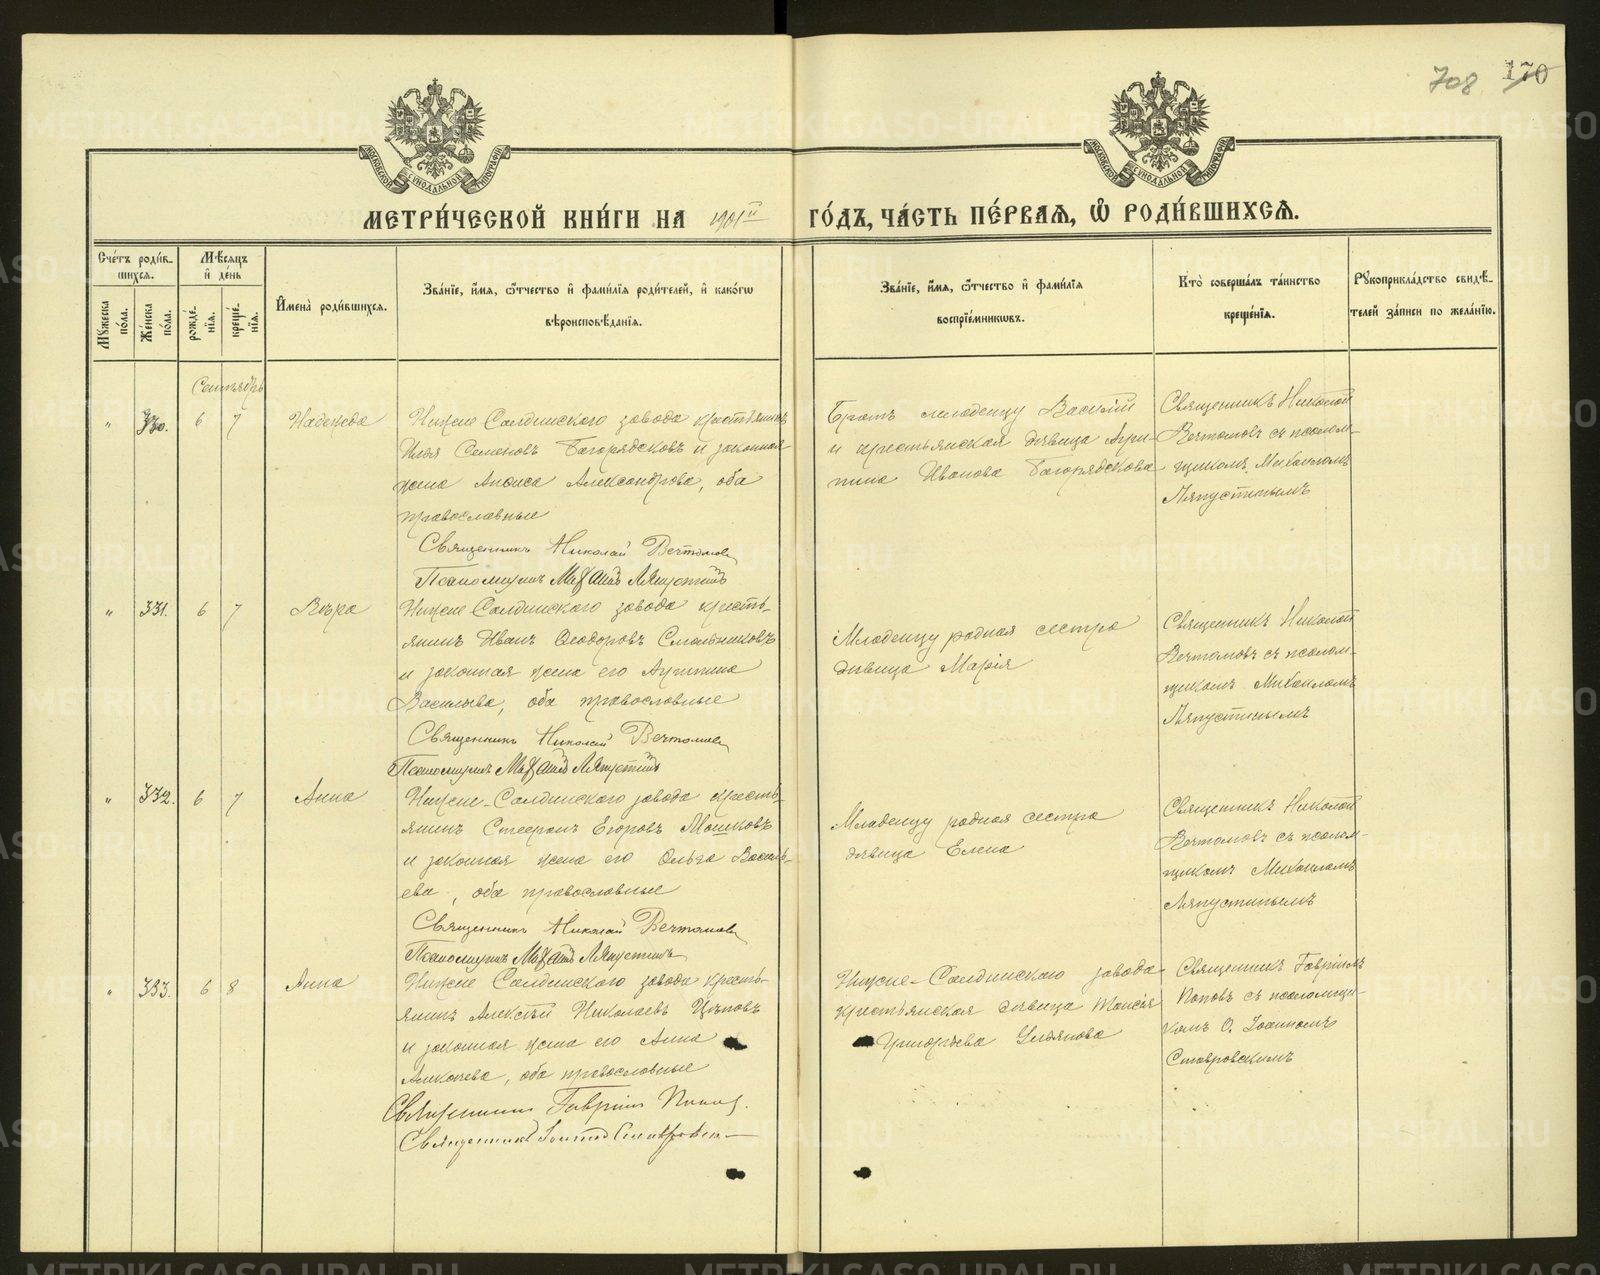 708 170
МОСКОВСКОЙ СѴНОДАЛЬНОЙ ТИПОГРАФІИ
МОСКОВСКОЙ СѴНОДАЛЬНОЙ ТИПОГРАФІИ
МЕТРИ́ЧЕСКОЙ КНИ́ГИ НА 1901й ГО́ДЪ, ЧА́СТЬ ПЕ́РВАѦ, Ѽ РОДИ́ВШИХСѦ.
Сче́тъ роди́в-
шихсѧ.
Мꙋ́жеска по́ла.
Же́нска по́ла.
Мѣ́сѧцъ
и҆ де́нь
рожде́-
нїѧ.
креще́-
нїѧ.
И҆мена̀ роди́вшихсѧ.
Зва́нїе, и҆́мѧ, ѻ҆́тчество и҆ фами́лїѧ роди́телей, и҆ како́гѡ
вѣроисповѣ́данїѧ.
Зва́нїе, и҆́мѧ, ѻ҆́тчество и҆ фами́лїѧ
воспрїе́мникѡвъ.
Кто̀ соверша́лъ та́инство
креще́нїѧ.
Рꙋкоприкла́дство свидѣ́-
телей за́писи по жела́нїю.
Сентябрь
" 330. 6 7 Надежда
Нижне Салдинскаго завода крестьянинъ
Илья Семеновъ Багорядсковъ и законная
жена Аниса Александрова, оба
православные
Священникъ Николай Вечтомов
Псаломщикъ Михаилъ Ляпустинъ
Братъ младенцу Василій
и крестьянская дѣвица Агри-
пина Иванова Багорядскова
Священникъ Николай
Вечтомовъ съ псалом-
щикомъ Михаиломъ
Ляпустинымъ
" 331. 6 7 Вѣра
Нижне Салдинскаго завода кресть-
янинъ Иванъ Ѳеодоровъ Смольниковъ
и законная жена его Агрипина
Васильева, оба православные
Священникъ Николай Вечтомов
Псаломщикъ Михаилъ Ляпустинъ
Младенцу родная сестра
дѣвица Марія
Священникъ Николай
Вечтомовъ съ псалом-
щикомъ Михаиломъ
Ляпустинымъ
" 332. 6 7 Анна
Нижне-Салдинскаго завода кресть-
янинъ Егоровъ Мошковъ
и законная жена его Ольга Василь-
ева, оба православные
Священникъ Николай Вечтомов
Псаломщикъ Михаилъ Ляпустинъ
Младенцу родная сестра
дѣвица Елена
Священникъ Николай
Вечтомовъ съ псалом-
щикомъ Михаиломъ
Ляпустинымъ
" 333. 6 8 Анна
Нижне Салдинскаго завода кресть-
янинъ Алексѣй Николаевъ Цѣповъ
и законная жена его Анна
оба православные
Священникъ Гавріилъ Попов.
Священникъ Іоаннъ Ставровскій
Нижне-Салдинскаго завода
крестьянская дѣвица Таисія
Григорьева Ульянова
Священникъ Гавріилъ
Поповъ съ псаломщи-
комъ О. Іоанномъ
Ставровскимъ
METRIKI.GASO-URAL.RU